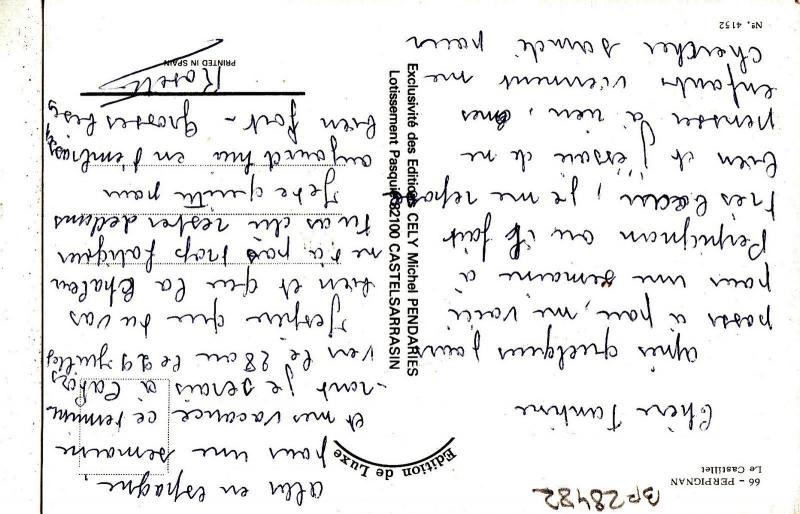 66 - PERPIGNAN
Le Castillet
BP28482
Edition de Luxe
Chère Tantine
après quelques jours
passé à pau, me voici
pour une semaine à
Perpignan ou il fait
très beau, je me repose
bien et j'essaie de ne
penser à rien, mes
enfants viennent me
chercher samedi pour
Nº. 4152
Exclusivité des Editions CELY Michel PENDARIES
Lotissement Pasquié 82100 CASTELSARRASIN
aller en espagne,
pour une semaine
et mes vacance ce termine
-ront je serais à Cahors
vers le 28 ou le 29 juillet
J'espère que tu vas
bien et que la chaleur
ne t'a pas trop fatiguée
tu as du rester dedans
Je te quitte pour
aujourd'hui en t'embrassant
bien fort - grosses bises
PRINTED IN SPAIN